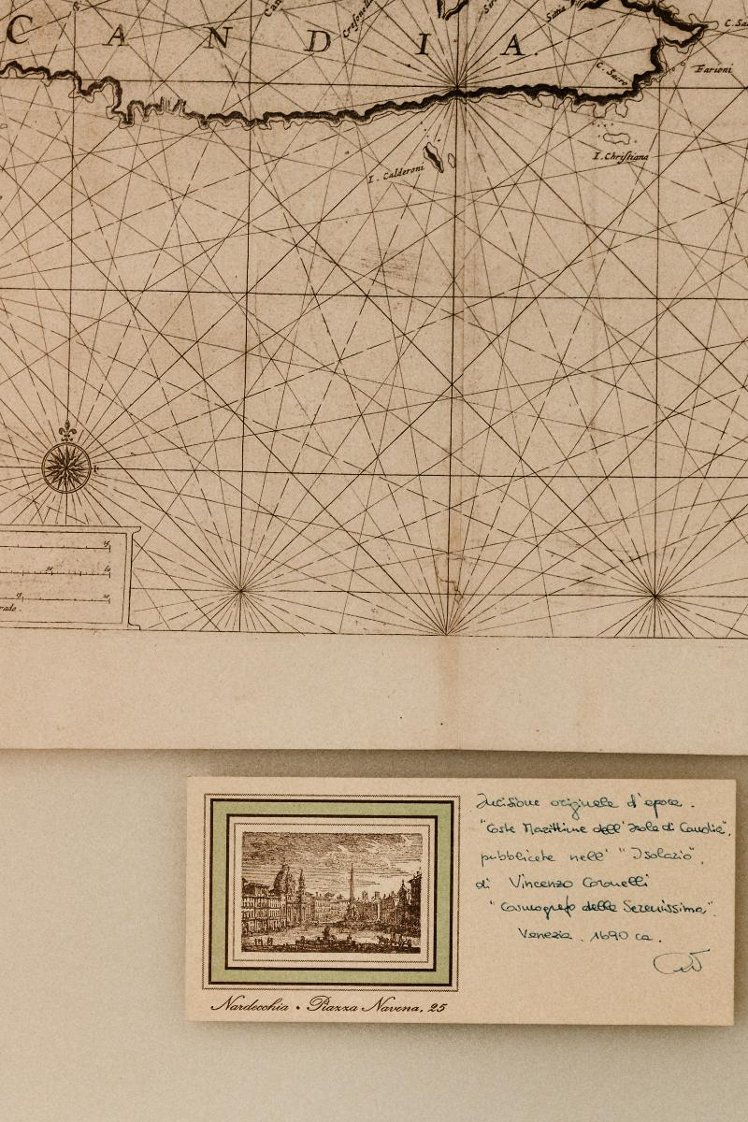 CANDIA.
C. Sacro
Farioni
I. Calderoni
I. Christiana
Incisione originale d'epoca.
"Coste Marittime dell'Isola di Candia",
pubblicate nell' "Isolario",
di Vincenzo Coronelli
"Cosmografo della Serenissima".
Venezia. 1690 ca.
Nardecchia • Piazza Navona, 25